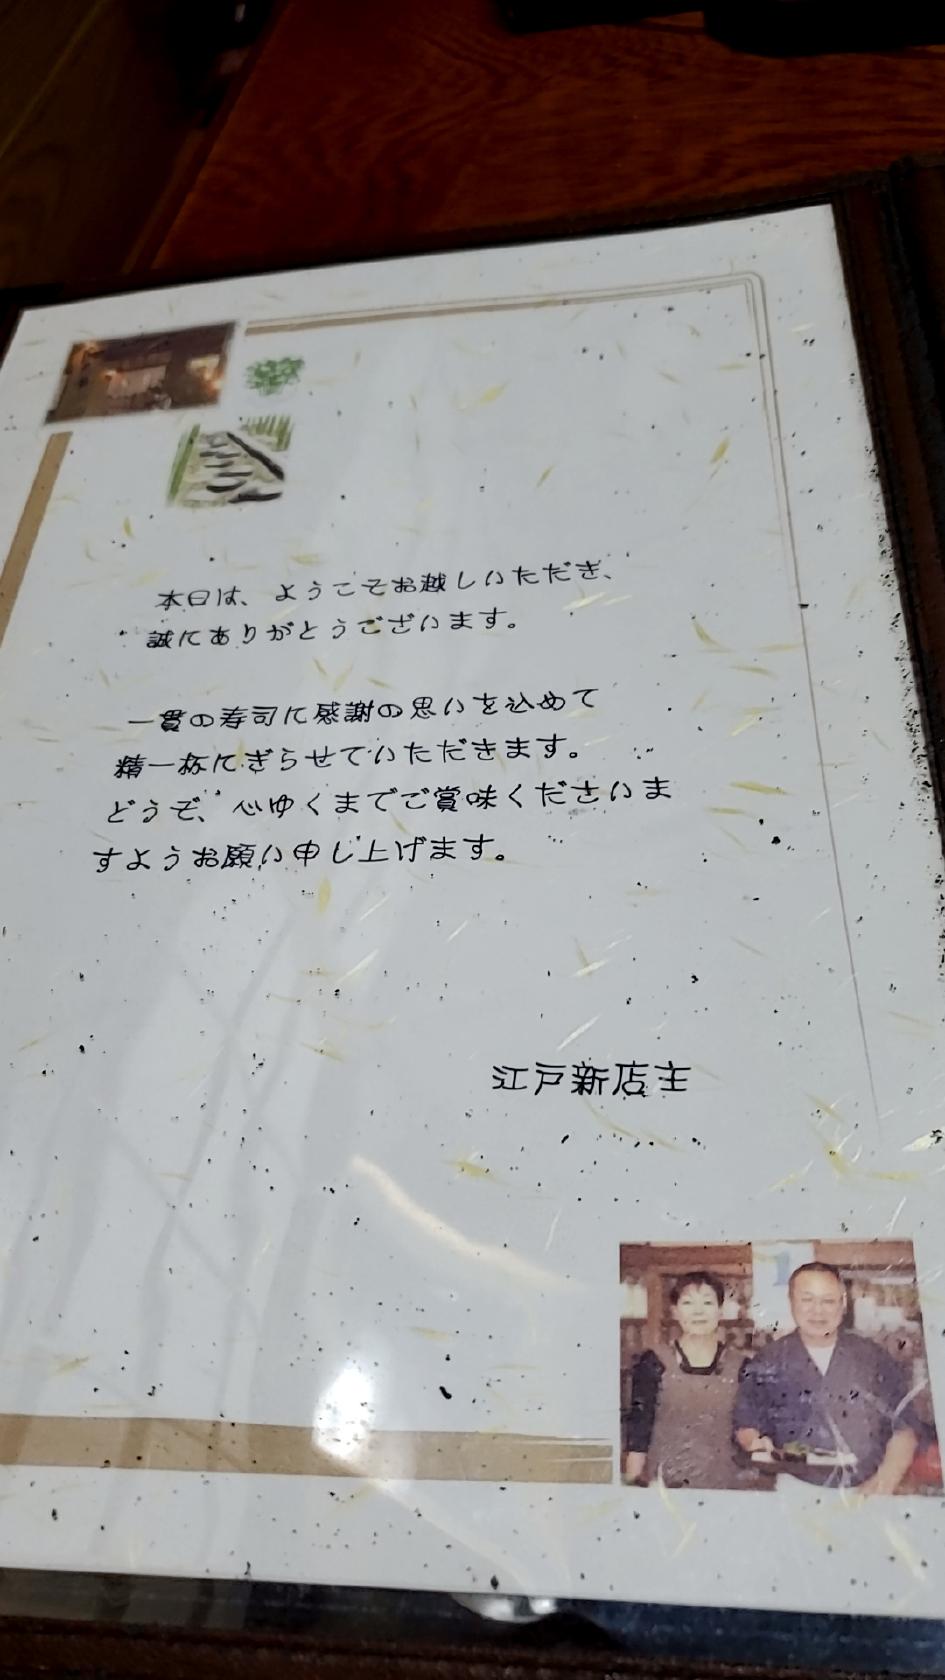 本日は、ようこそお越しいただき、
誠にありがとうございます。
一貫の寿司に感謝の思いを込めて
精一杯にぎらせていただきます。
どうぞ、心ゆくまでご賞味くださいま
すようお願い申し上げます。
江戸新店主